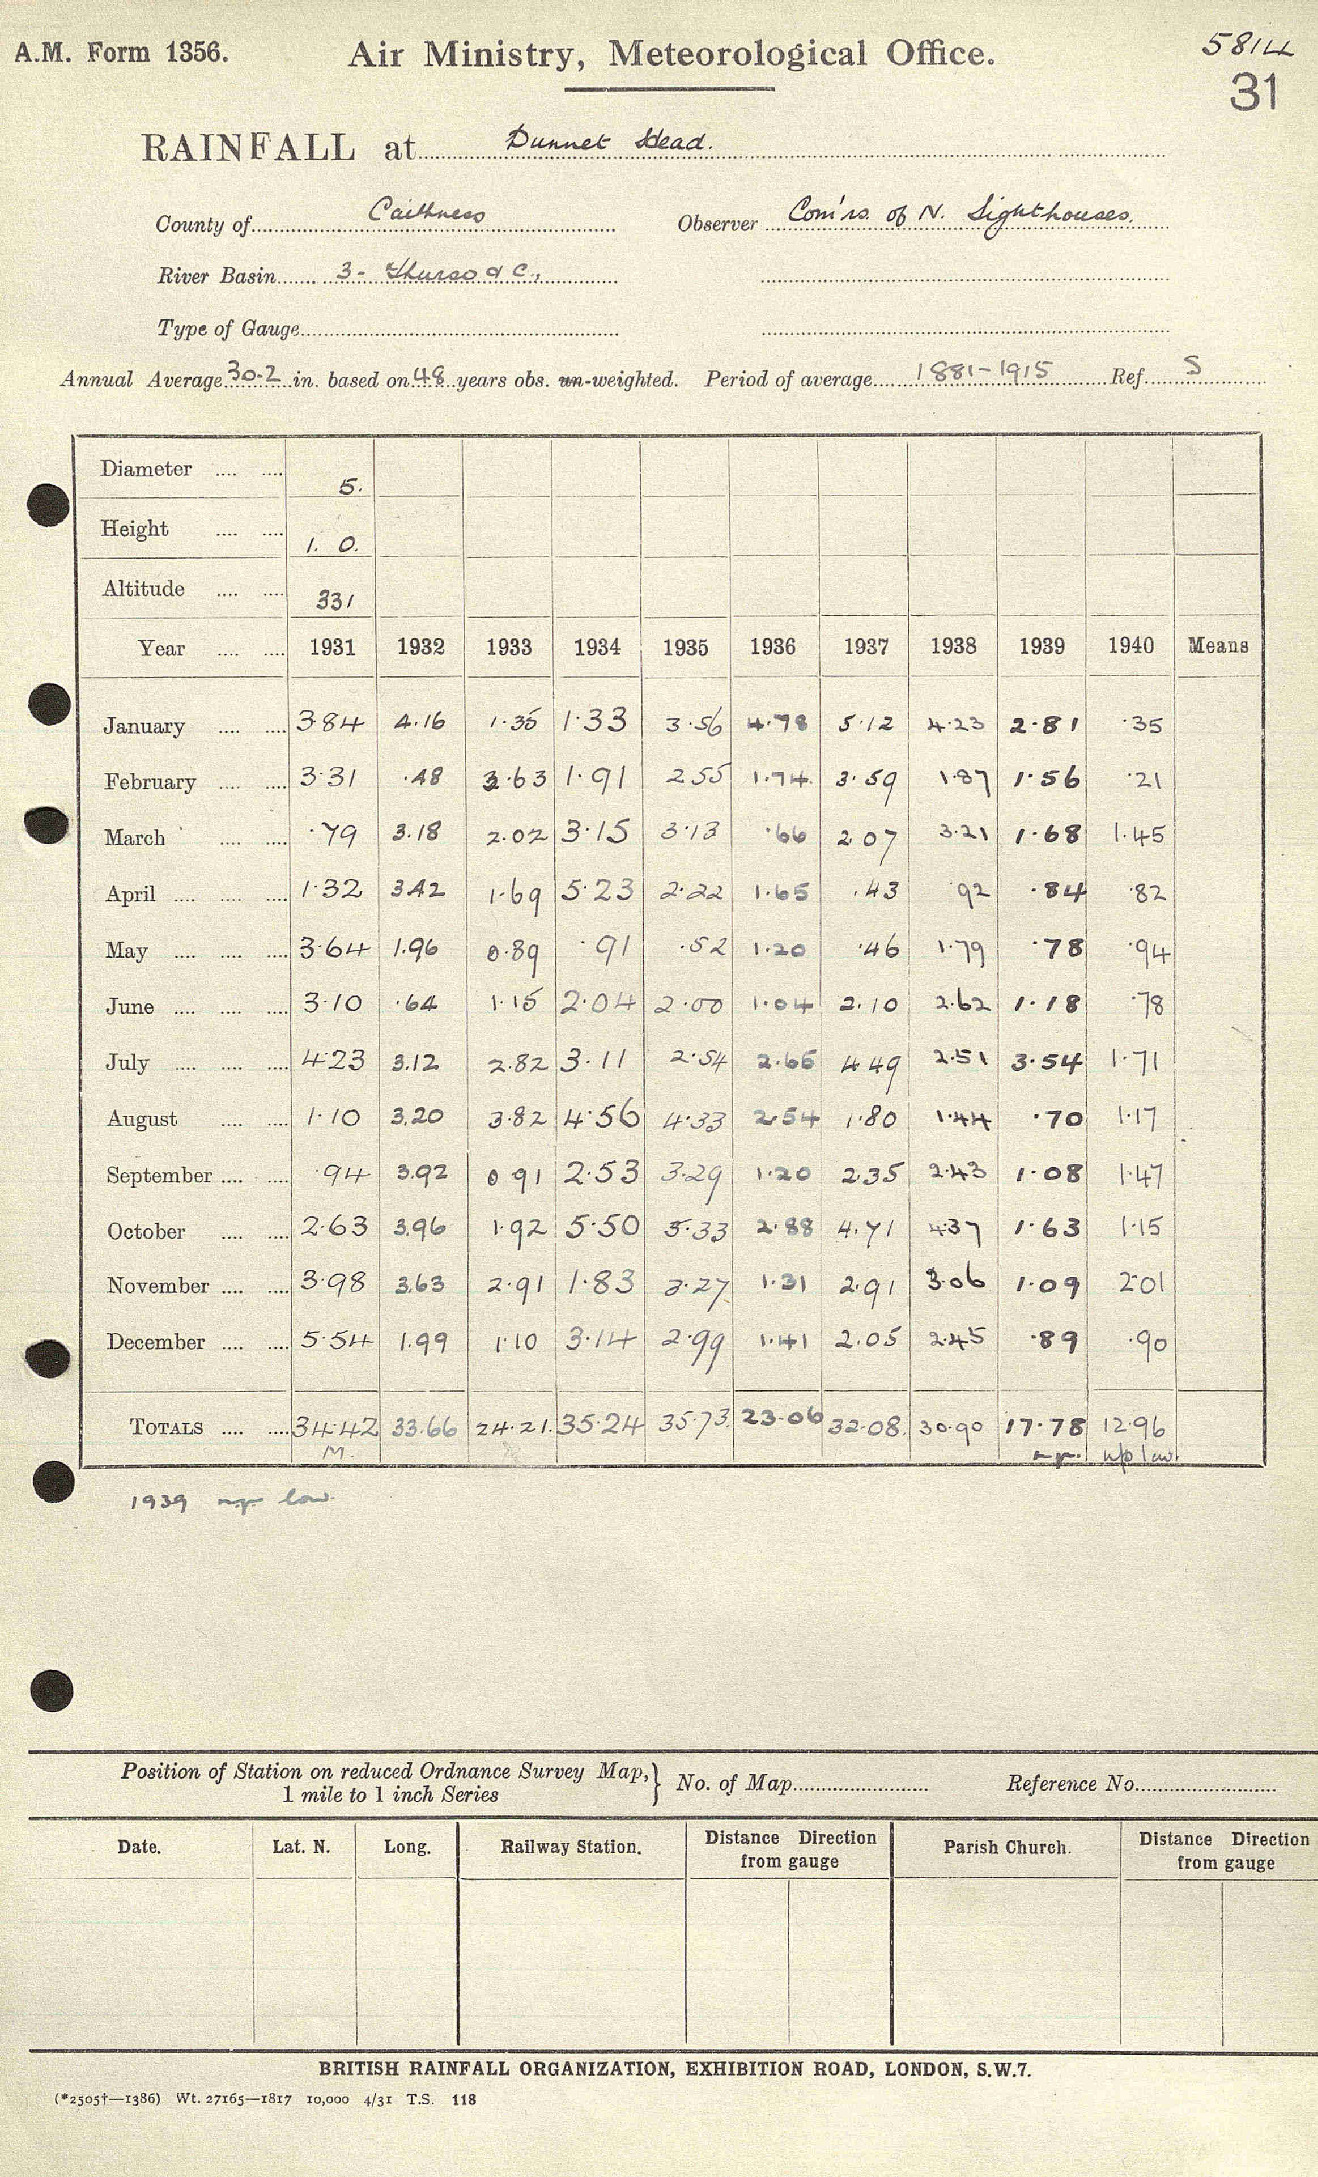 A.M. Form 1356. Air Ministry, Meteorological Office. 5814
31
RAINFALL at Dunnet Head.
County of Caithness Observer Com'rs. of N. Lighthouses.
River Basin 3 - Thurso &c.,
Type of Gauge
Annual Average 30.2 in. based on 48 years obs. un-weighted. Period of average 1881-1915 Ref. S
Diameter 5.
Height 1. 0.
Altitude 331
Year 1931 1932 1933 1934 1935 1936 1937 1938 1939 1940 Means
January 3.84 4.16 1.35 1.33 3.56 4.78 5.12 4.23 2.81 .35
February 3.31 .48 3.63 1.91 2.55 1.74 3.59 1.87 1.56 .21
March .79 3.18 2.02 3.15 3.13 .66 2.07 3.21 1.68 1.45
April 1.32 3.42 1.69 5.23 2.22 1.65 .43 .92 .84 .82
May 3.64 1.96 0.89 .91 .52 1.20 .46 1.79 .78 .94
June 3.10 .64 1.15 2.04 2.00 1.04 2.10 2.62 1.18 .78
July 4.23 3.12 2.82 3.11 2.54 2.65 4.49 2.51 3.54 1.71
August 1.10 3.20 3.82 4.56 4.33 2.54 1.80 1.44 .70 1.17
September .94 3.92 0.91 2.53 3.29 1.20 2.35 2.43 1.08 1.47
October 2.63 3.96 1.92 5.50 5.33 2.88 4.71 4.37 1.63 1.15
November 3.98 3.63 2.91 1.83 3.27 1.31 2.91 3.06 1.09 2.01
December 5.54 1.99 1.10 3.14 2.99 1.41 2.05 2.45 .89 .90
TOTALS 34.42 33.66 24.21. 35.24 35.73. 23.06 32.08. 30.90 17.78 12.96
M. n.p. n/p low.
1939 n.p. low.
Position of Station on reduced Ordnance Survey Map, } No. of Map Reference No.
1 mile to 1 inch Series
Date. Lat. N. Long. Railway Station. Distance Direction from gauge Parish Church. Distance Direction from gauge
BRITISH RAINFALL ORGANIZATION, EXHIBITION ROAD, LONDON, S.W.7.
(*2505†—1386) Wt. 27165—1817 10,000 4/31 T.S. 118